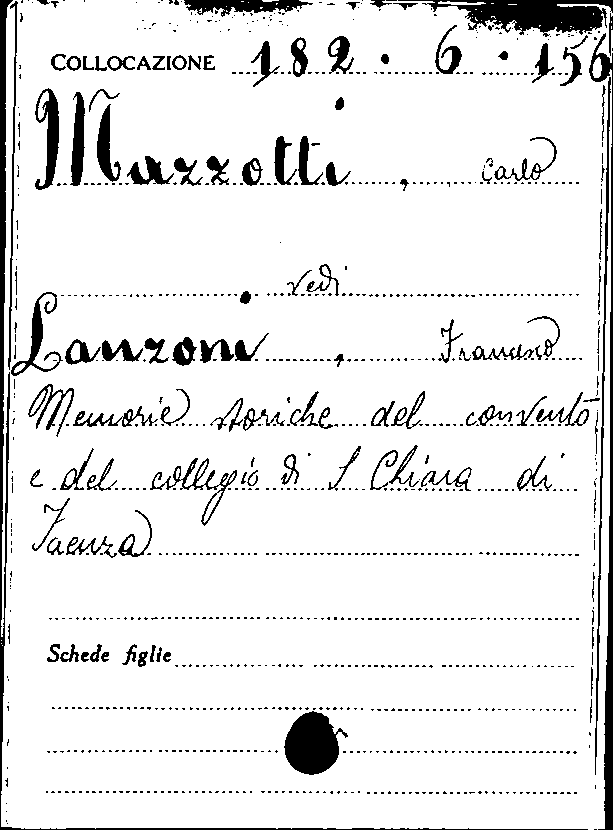 COLLOCAZIONE 182 . 6 . 156
Mazzotti , Carlo
vedi
Lanzoni , Francesco
Memorie storiche del convento
e del collegio di S Chiara di
Faenza
Schede figlie